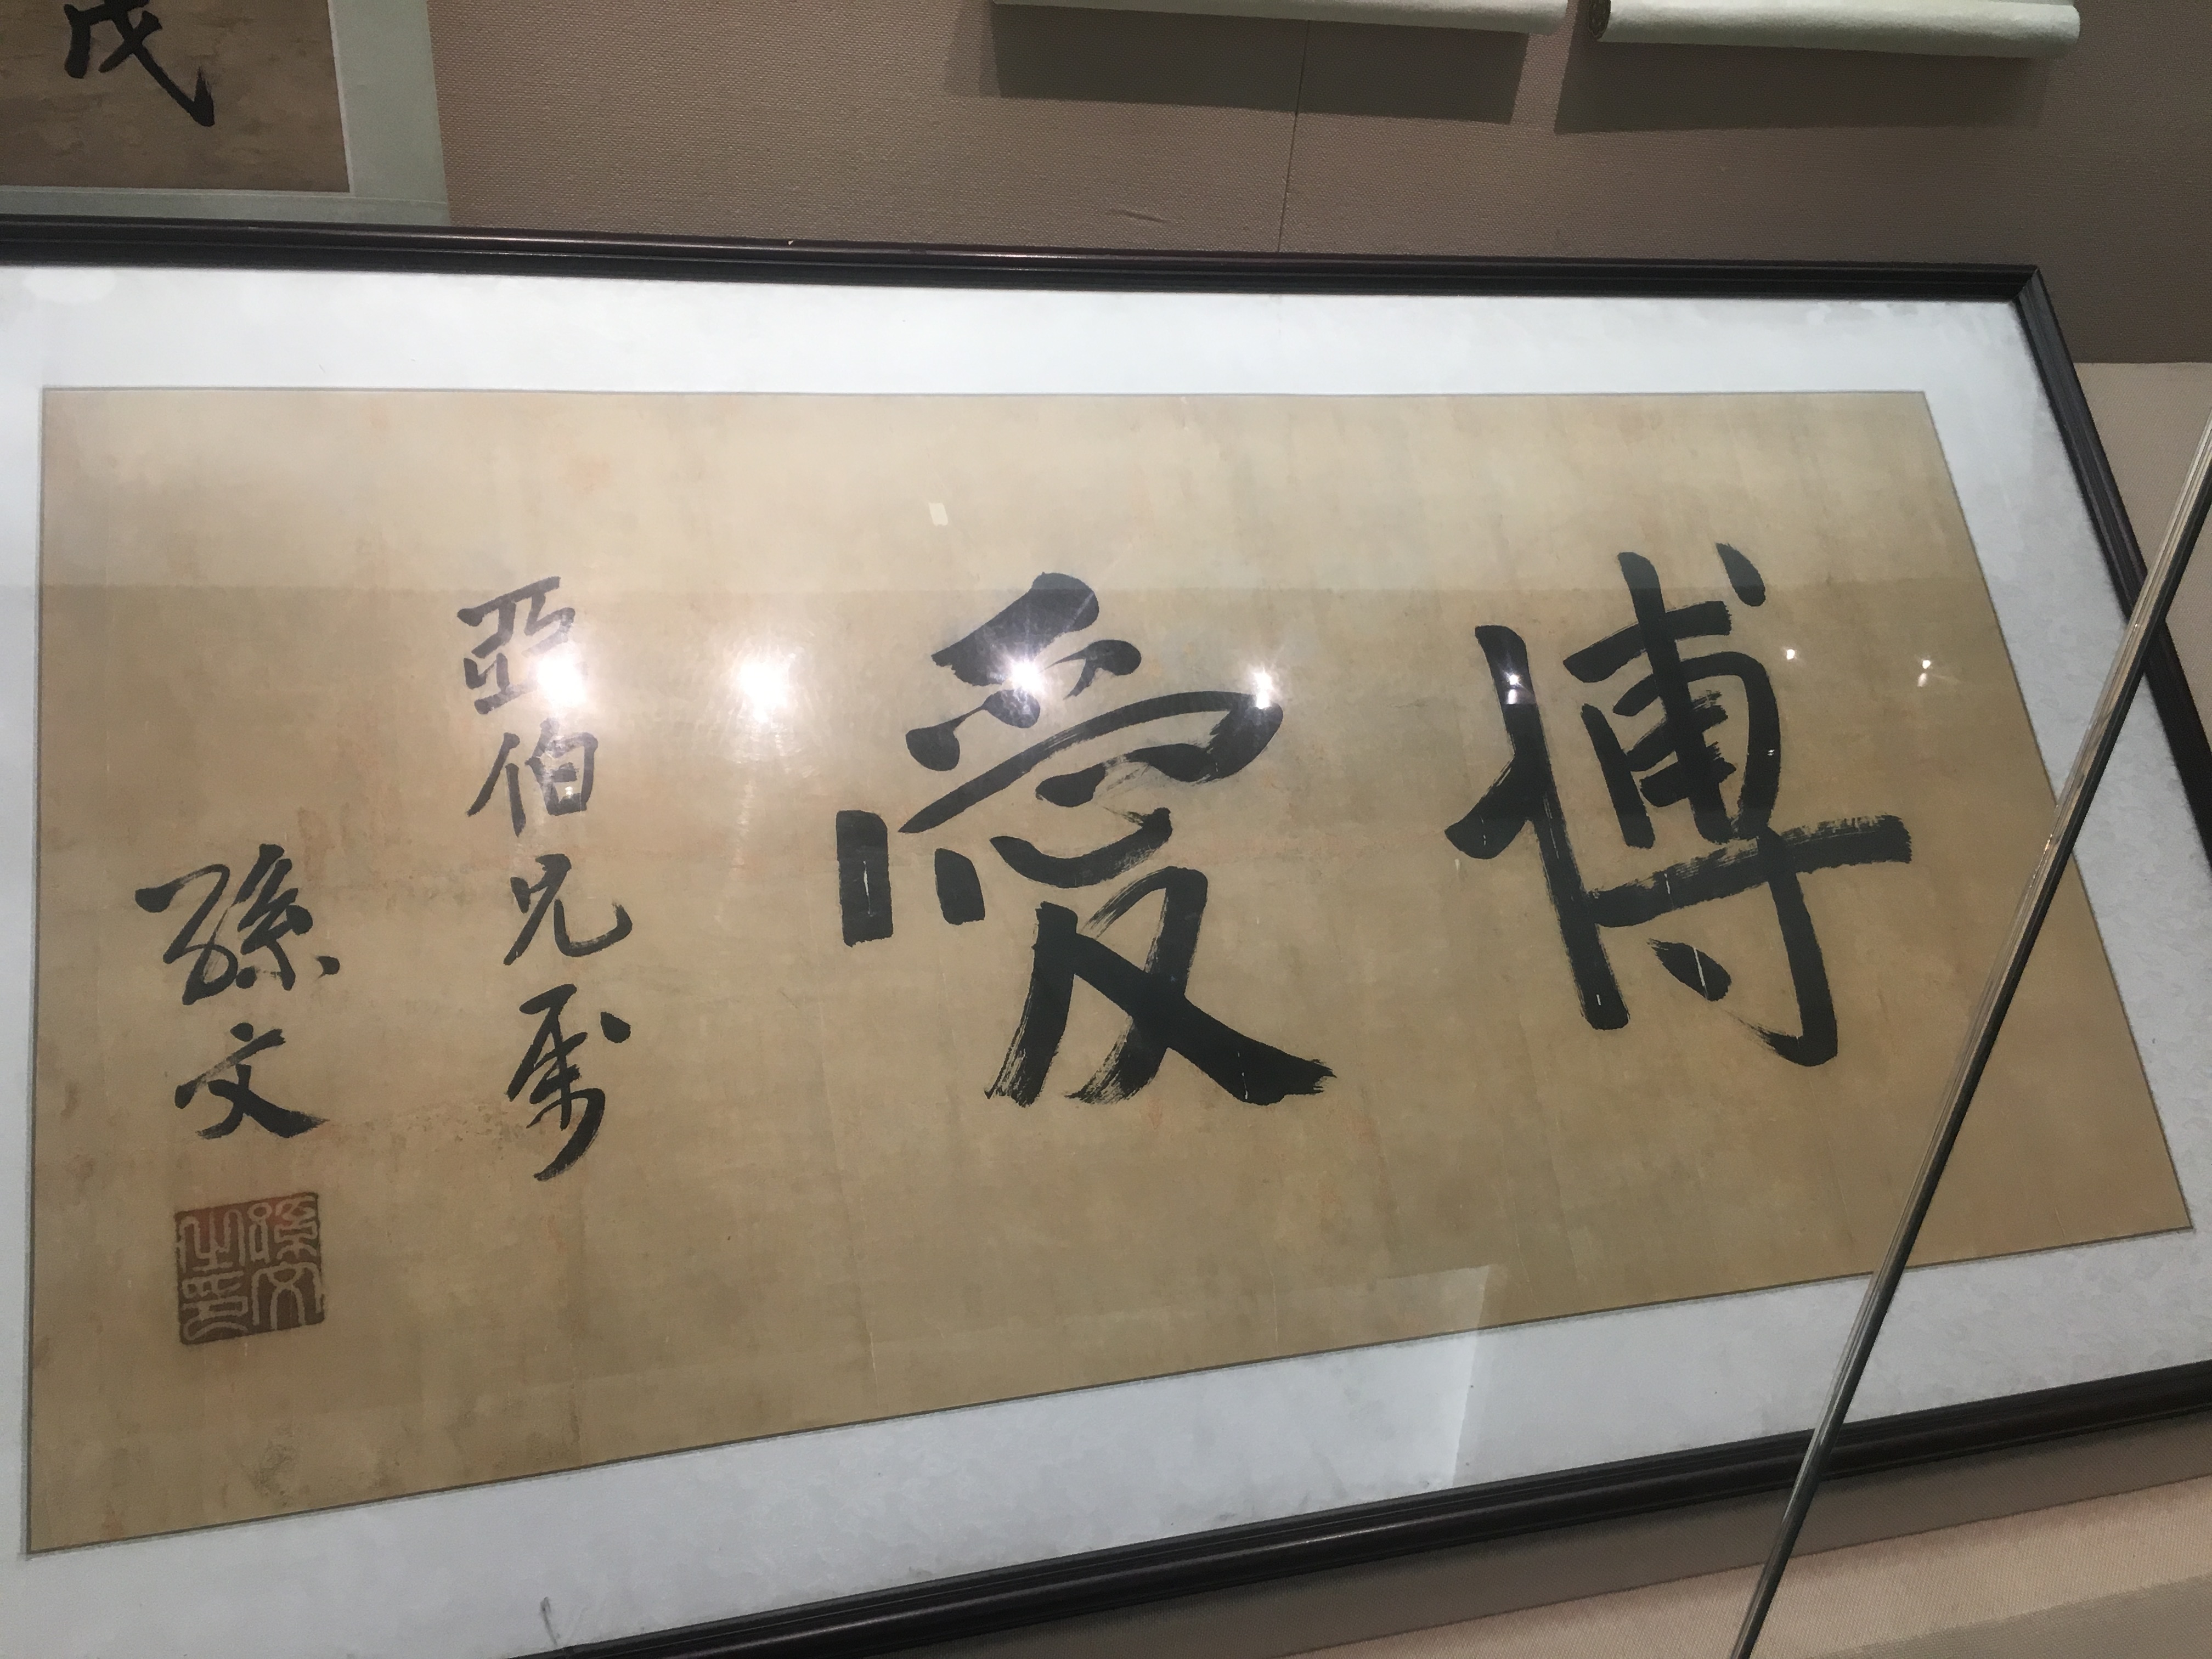 博愛
亞伯兄屬
孫文
孫文之印
茂